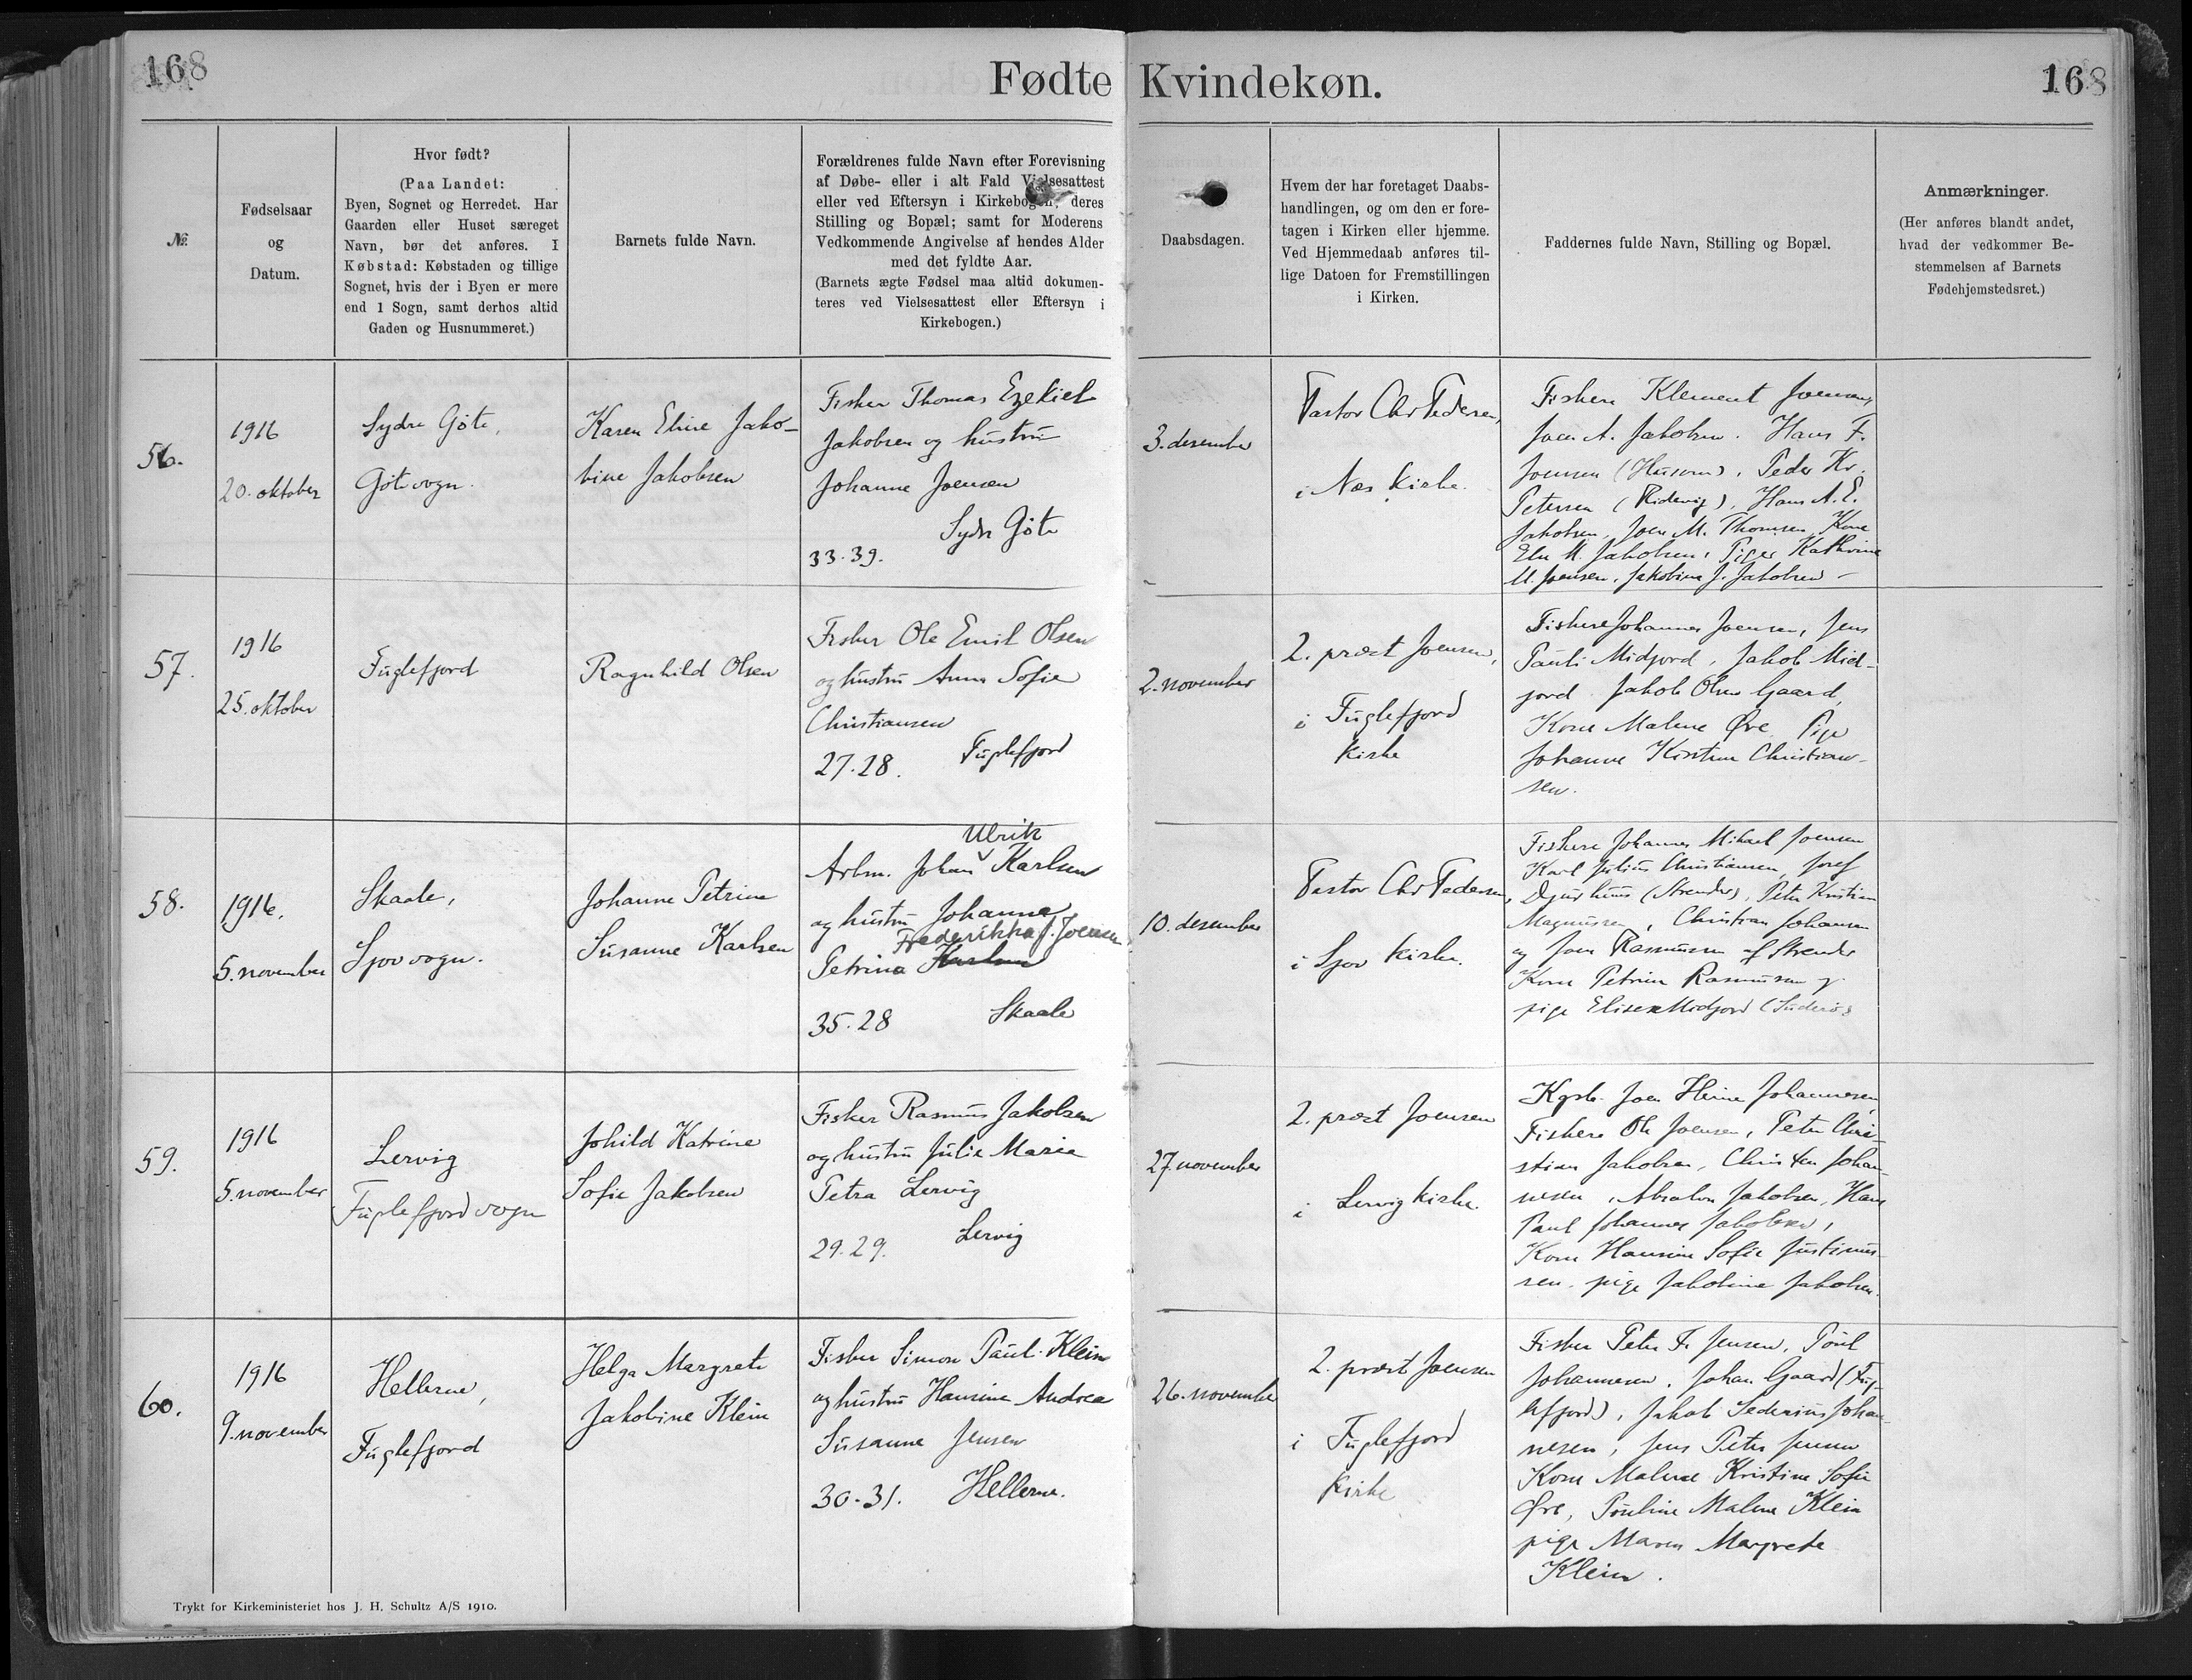 168
Fødte Kvindekøn.
168
№
Fødselsaar
og
Datum.
Hvor født?
(Paa Landet:
Byen, Sognet og Herredet. Har
Gaarden eller Huset særeget
Navn, bør det anføres. I
Købstad: Købstaden og tillige
Sognet, hvis der i Byen er mere
end 1 Sogn, samt derhos altid
Gaden og Husnummeret.)
Barnets fulde Navn.
Forældrenes fulde Navn efter Forevisning
af Døbe- eller i alt Fald Vielsesattest
eller ved Eftersyn i Kirkebogen; deres
Stilling og Bopæl; samt for Moderens
Vedkommende Angivelse af hendes Alder
med det fyldte Aar.
(Barnets ægte Fødsel maa altid dokumen-
teres ved Vielsesattest eller Eftersyn i
Kirkebogen.)
Daabsdagen.
Hvem der har foretaget Daabs-
handlingen, og om den er fore-
tagen i Kirken eller hjemme.
Ved Hjemmedaab anføres til-
lige Datoen for Fremstillingen
i Kirken.
Faddernes fulde Navn, Stilling og Bopæl.
Anmærkninger.
(Her anføres blandt andet,
hvad der vedkommer Be-
stemmelsen af Barnets
Fødehjemstedsret.)
56.
1916
20. oktober
Sydre Göte,
Götesogn.
Karen Eline Jako-
bine Jakobsen
Fisker Thomas Ezekiel
Jakobsen og hustru
Johanne Joensen
Sydr Göte
33.39.
3. desember
Pastor Chr Pedersen,
i Nes kirke.
Fiskere Klement Joensen,
Joen A. Jakobsen. Hans F.
Joensen (Husum), Peder Kr.
Petersen (Ridevig), Hans A. E.
Jakobsen, Joen M. Thomsen, Kone
Else M. Jakobsen, Piger Kathrine
M. Joensen, Jakobina J. Jakobsen
57.
1916
25. oktober
Fuglefjord
Ragnhild Olsen
Fisker Ole Emil Olsen
og hustru Anna Sofie
Christiansen
27.28. Fuglefjord
2. november
2. præst Joensen,
i Fuglefjord
kirke
Fiskere Johannes Joensen, Jens
Pauli Midjord, Jakob Mid-
jord Jakob Olsen Gaard,
Kone Malene Øre Pige
Johanne Kirstine Christian-
sen.
58.
1916.
5. november
Skaale,
Sjovsogn.
Johanne Petrine
Susanne Karlsen
Ulrik
Arbm. Johan Karlsen
og hustru Johanna
Frederikka J. Joensen
Petrina Karlsen
35.28 Skaale
10. desember
Pastor Chr Pedersen,
i Sjov kirke.
Fiskere Johannes Mikael Joensen
Karl Julius Christiansen, Josef
Djurhuus (Strender), Peter Kristian
Magnussen, Christian Johansen
og Joen Rasmussen af Strender
Kone Petrine Rasmussen og
pige Elisex Midjord (Suderø)
59.
1916
5. november
Lervig
Fuglefjordsogn
Johild Katrine
Sofie Jakobsen
Fisker Rasmus Jakobsen
og hustru Julie Marie
Petra Lervig
29.29. Lervig
27 november
2. præst Joensen
i Lervig kirke.
Kgsb. Joen Heine Johannesen,
Fiskere Ole Joensen, Peter Chri-
stian Jakobsen, Christen Johan-
nesen, Absalon Jakobsen, Hans
Paul Johannes Jakobsen,
Kone Hansine Sofie Justinus-
sen. pige Jakobine Jakobsen.
60.
1916
9. november
Hellerne,
Fuglefjord
Helga Margrete
Jakobine Klein
Fisker Simon Pauli Klein
og hustru Hansine Andrea
Susanne Jensen
30.31. Hellerne.
26. november
2. præst Joensen
i Fuglefjord
kirke
Fisker Peter F. Jensen, Poul
Johannesen, Johan Gaard (Fug-
lefjord), Jakob Sederius Johan-
nesen, Jens Peter Jensen
Kone Malene Kristine Sofie
Øre, Pouline Malene Klein
pige Maren Margrete
Klein.
Trykt for Kirkeministeriet hos J. H. Schultz A/S 1910.